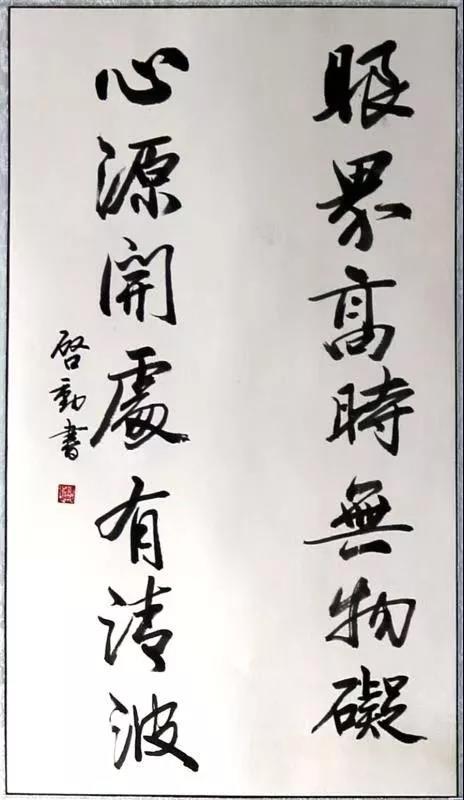 眼界高時無物礙
心源開處有清波
啓勳書